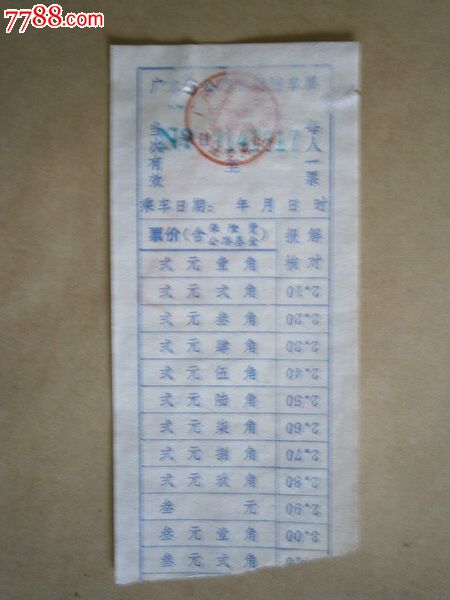 7788.com
广东省公
车票
No
当次有效
至
每人一票
乘车日期： 年 月 日 时
票价（含保险费公路基金）
报解核对
弍元壹角
弍元弍角 2.10
弍元叁角 2.20
弍元肆角 2.30
弍元伍角 2.40
弍元陆角 2.50
弍元柒角 2.60
弍元捌角 2.70
弍元玖角 2.80
叁 元 2.90
叁元壹角 3.00
叁元弍角